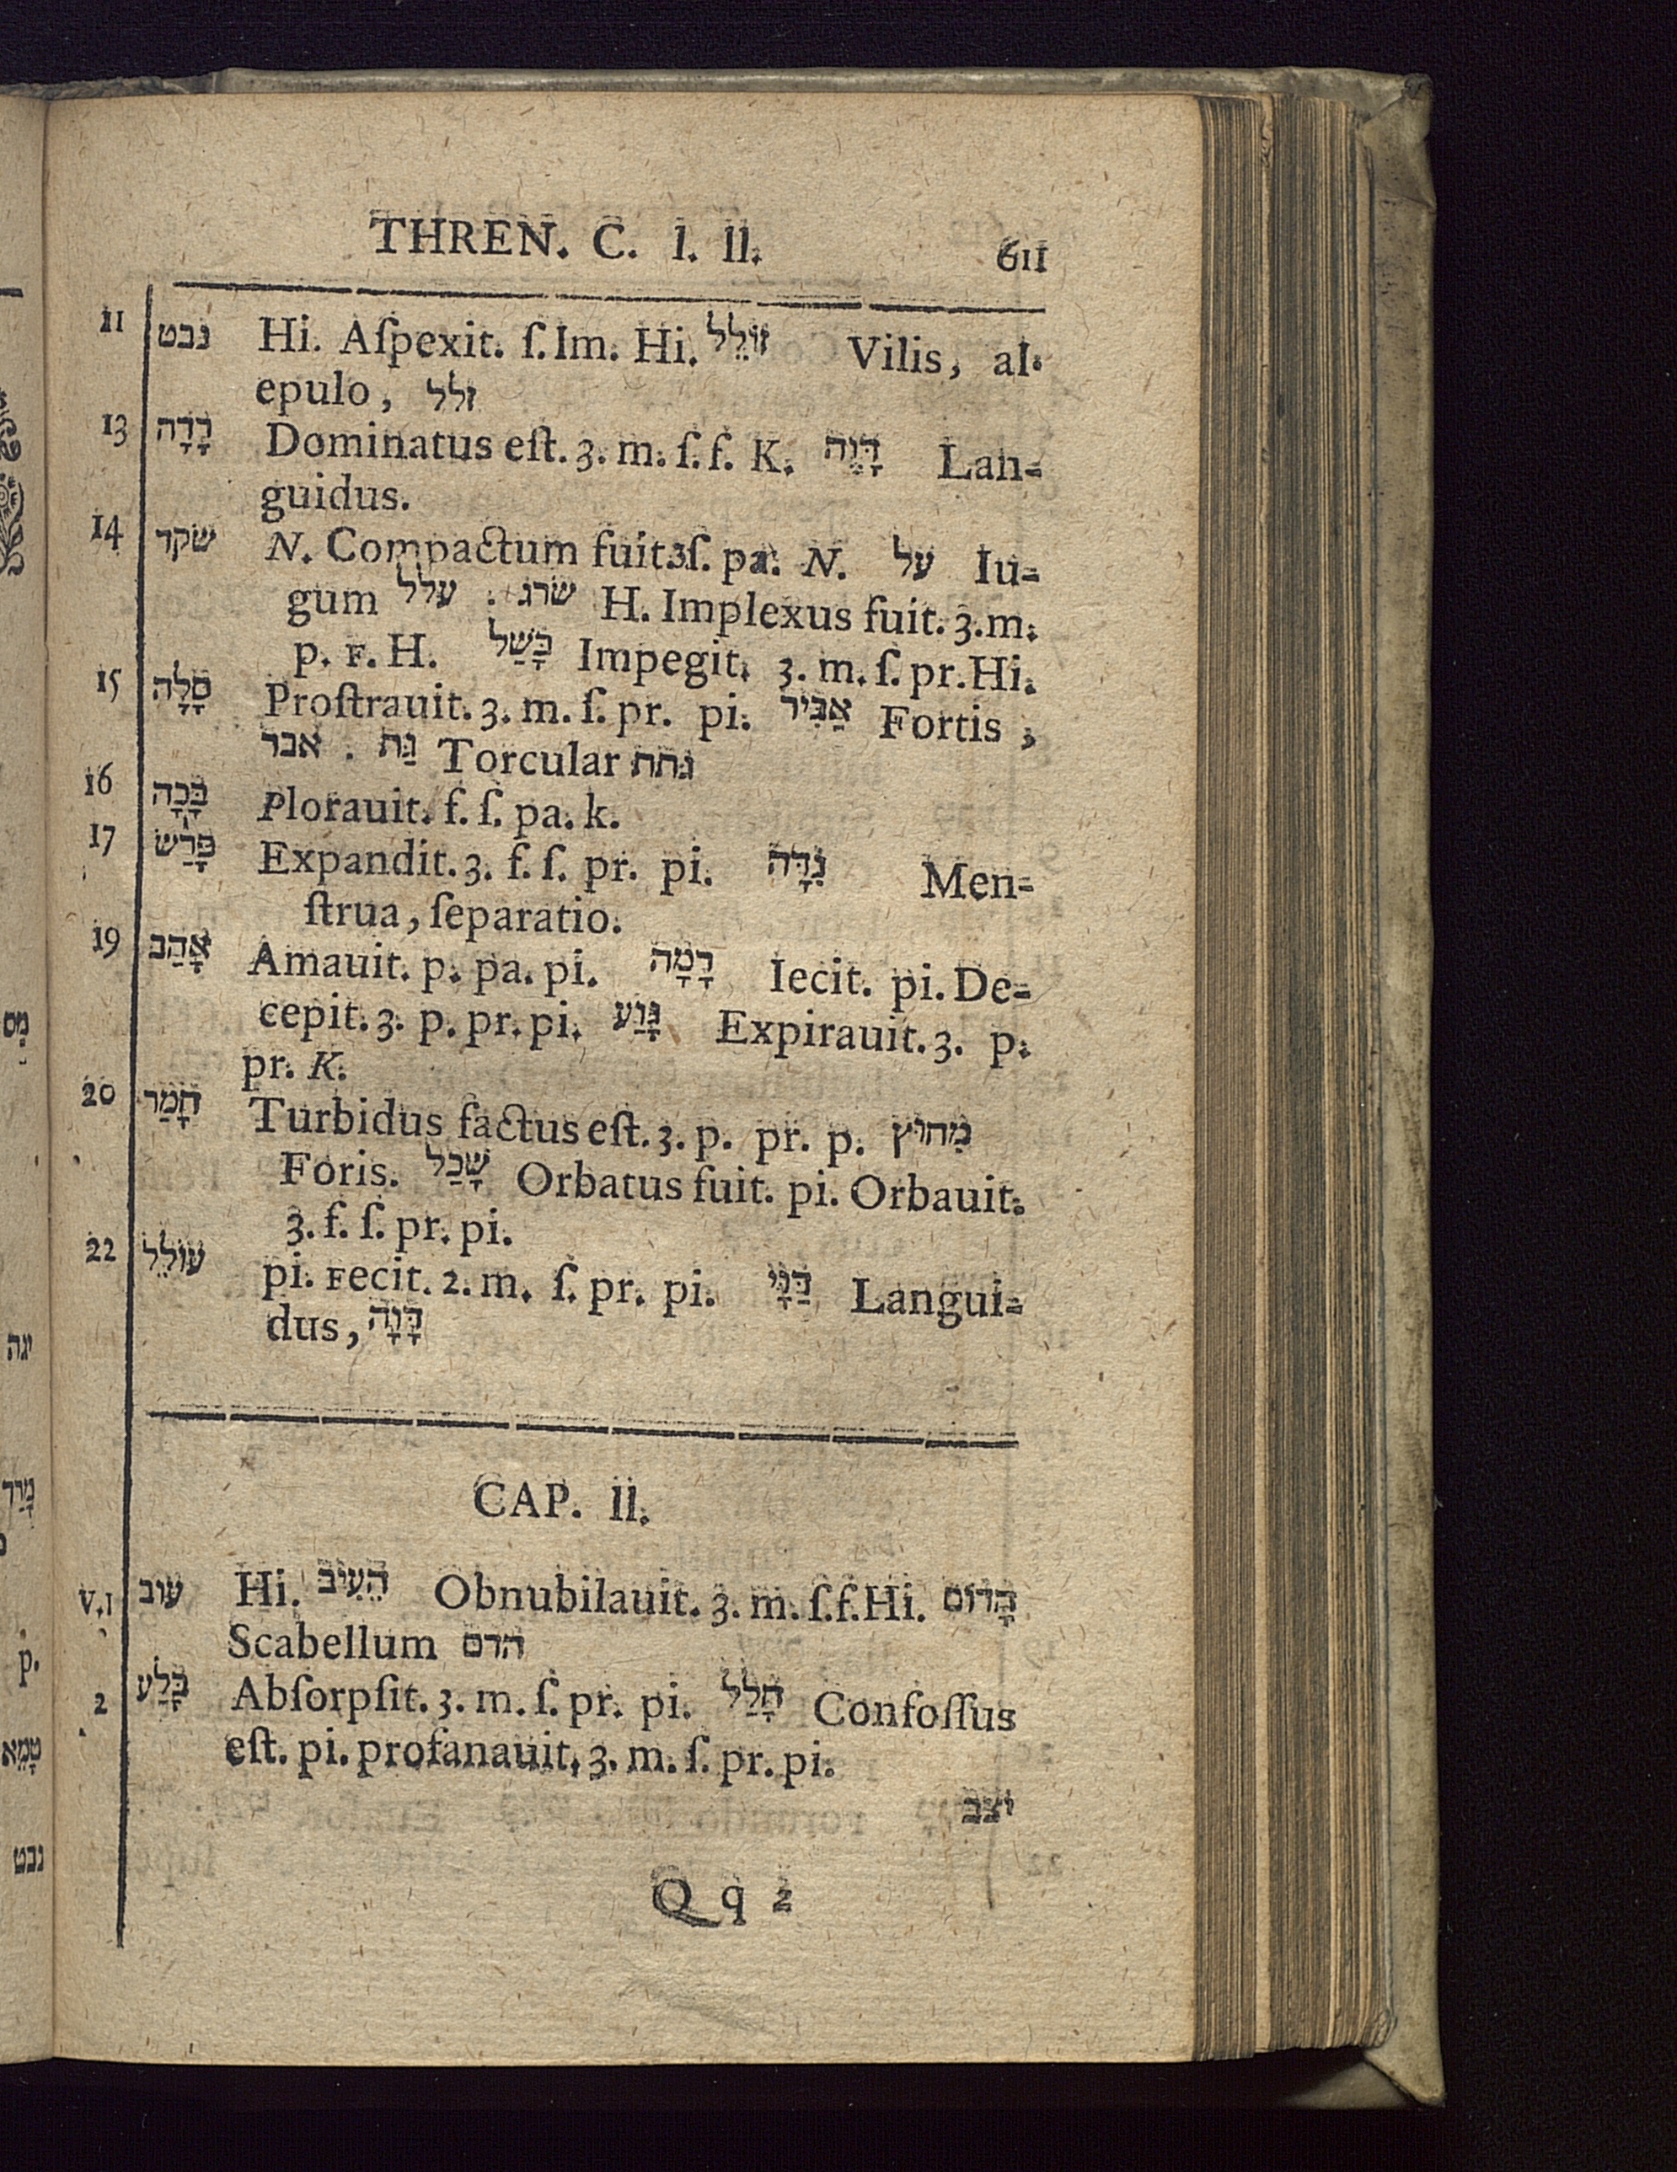 THREN. C. I. II. 611
11 נבט Hi. Aſpexit. ſ. Im. Hi. זוֹלֵל Vilis, al.
epulo, זלל
13 רָדָה Dominatus eſt. 3. m. ſ. f. K. דָּוֶה Lan-
guidus.
14 שקד N. Compactum fuit. 3ſ. pa. N. על Iu-
gum עלל . שרג H. Implexus fuit. 3. m.
p. F. H. כָּשַׁל Impegit. 3. m. ſ. pr. Hi.
15 סָלָה Proſtrauit. 3. m. ſ. pr. pi. אַבִּיר Fortis,
אבר . גַּת Torcular גתת
16 בָּכָה Plorauit. f. ſ. pa. k.
17 פָּרַשׂ Expandit. 3. f. ſ. pr. pi. נִדָּה Men-
ſtrua, ſeparatio.
19 אָהַב Amauit. p. pa. pi. רָמָה Iecit. pi. De-
cepit. 3. p. pr. pi. גָּוַע Expirauit. 3. p.
pr. K.
20 חָמַר Turbidus factus eſt. 3. p. pr. p. מִחוּץ
Foris. שָׁכַל Orbatus fuit. pi. Orbauit.
3. f. ſ. pr. pi.
22 עוֹלֵל pi. Fecit. 2. m. ſ. pr. pi. דַּוָּי Langui-
dus, דָּוָה
CAP. II.
V. 1 עוב Hi. הֵעִיב Obnubilauit. 3. m. ſ. f. Hi. הָדוֹם
Scabellum הדם
2 בָּלַע Abſorpſit. 3. m. ſ. pr. pi. חָלַל Confoſſus
eſt. pi. profanauit. 3. m. ſ. pr. pi.
יצב
Q q 2